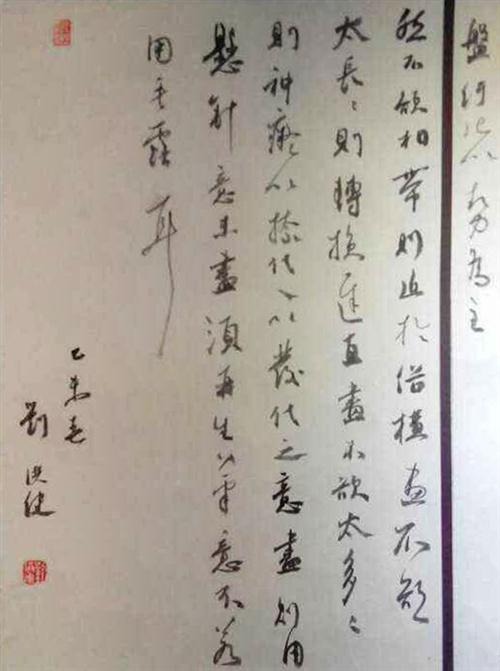 盤紆皆以勢為主
然不欲相帶則近於俗橫畫不欲
太長〻則轉換遲直畫不欲太多〻
則神癡以捺代乀以發代之意盡則用
懸針意未盡須再生筆意不若
用垂露耳
乙未春
劉洪健